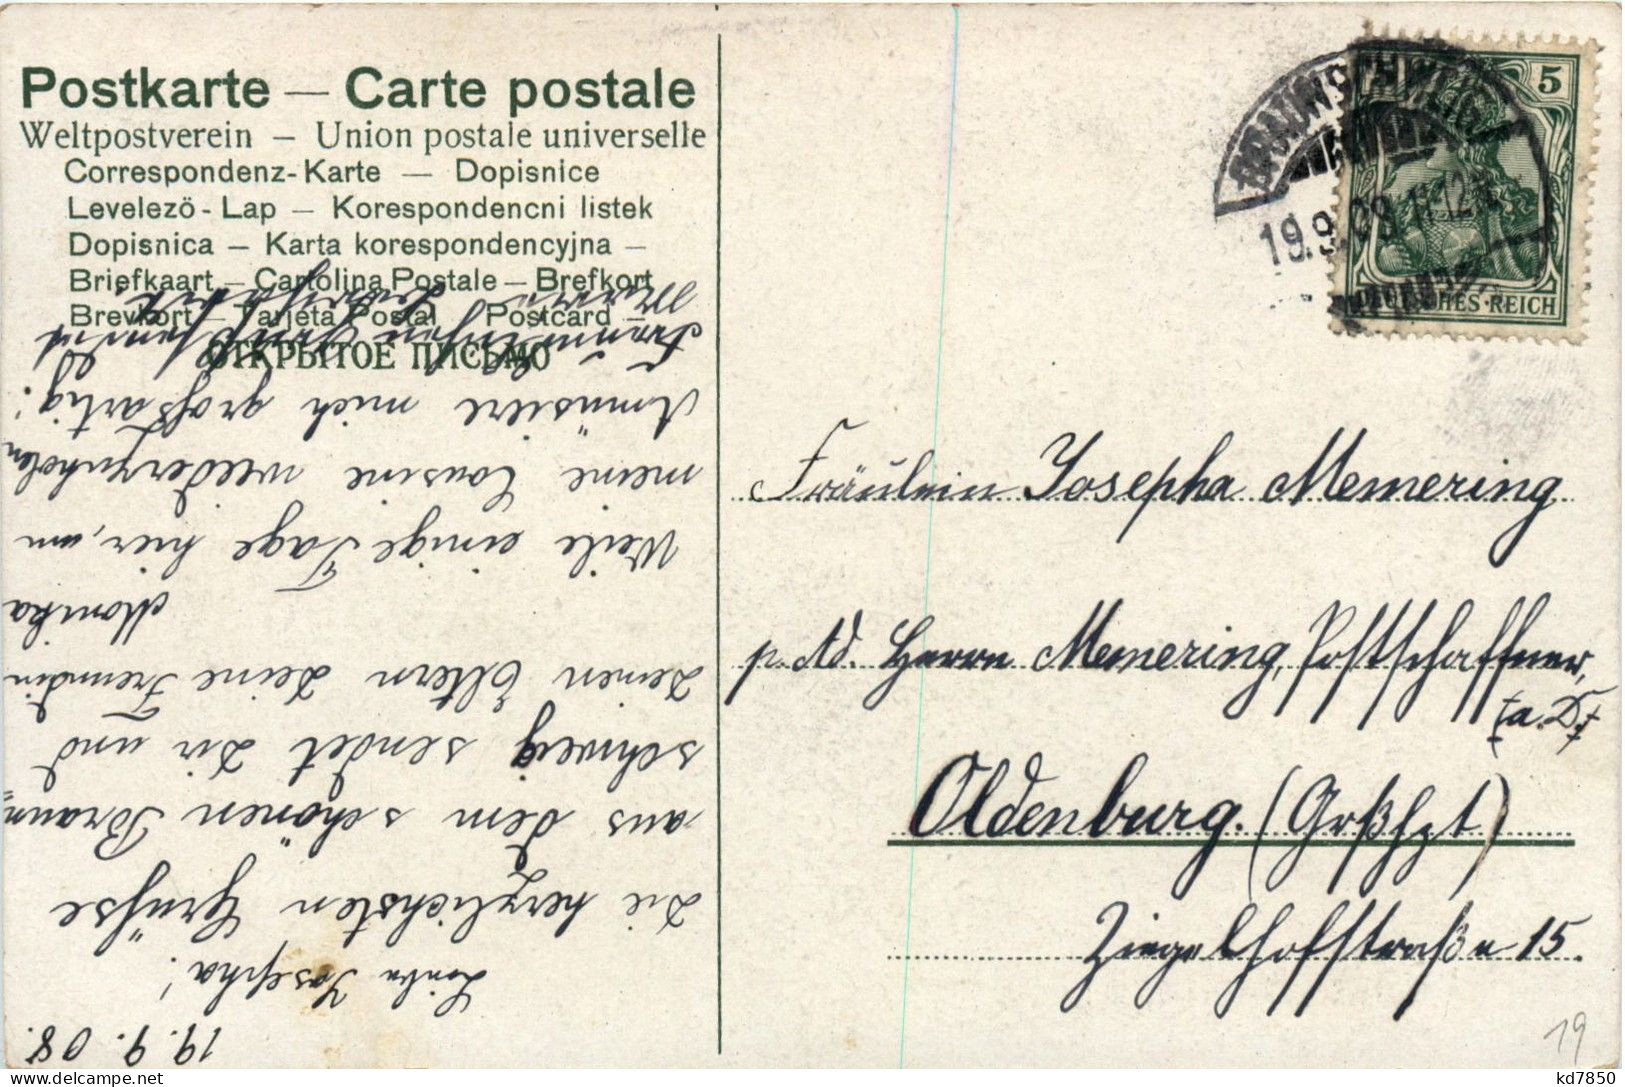 Postkarte — Carte postale
Weltpostverein — Union postale universelle
Correspondenz-Karte — Dopisnice
Levelezö-Lap — Korespondencni listek
Dopisnica — Karta korespondencyjna —
Briefkaart — Cartolina Postale — Brefkort
Brevkort — Tarjeta Postal — Postcard —
ОТКРЫТОЕ ПИСЬМО
19. 9. 08.
Liebe Josepha!
Die herzlichsten Grüße
aus dem schönen Braun„
schweig sendet Dir und
Deinen Eltern Deine Freundin
Monika
Weile einige Tage hier, um
meine Cousine wiederzuholen
Amüsiere mich großartig!
BRAUNSCHWEIG
19.9.08 11-12
5
DEUTSCHES REICH
Fräulein Josepha Memering
p. Ad. Herrn Memering, Postschaffner,
(a. D.)
Oldenburg. (Großhzt)
Ziegelhofstraße 15.
19
kd7850